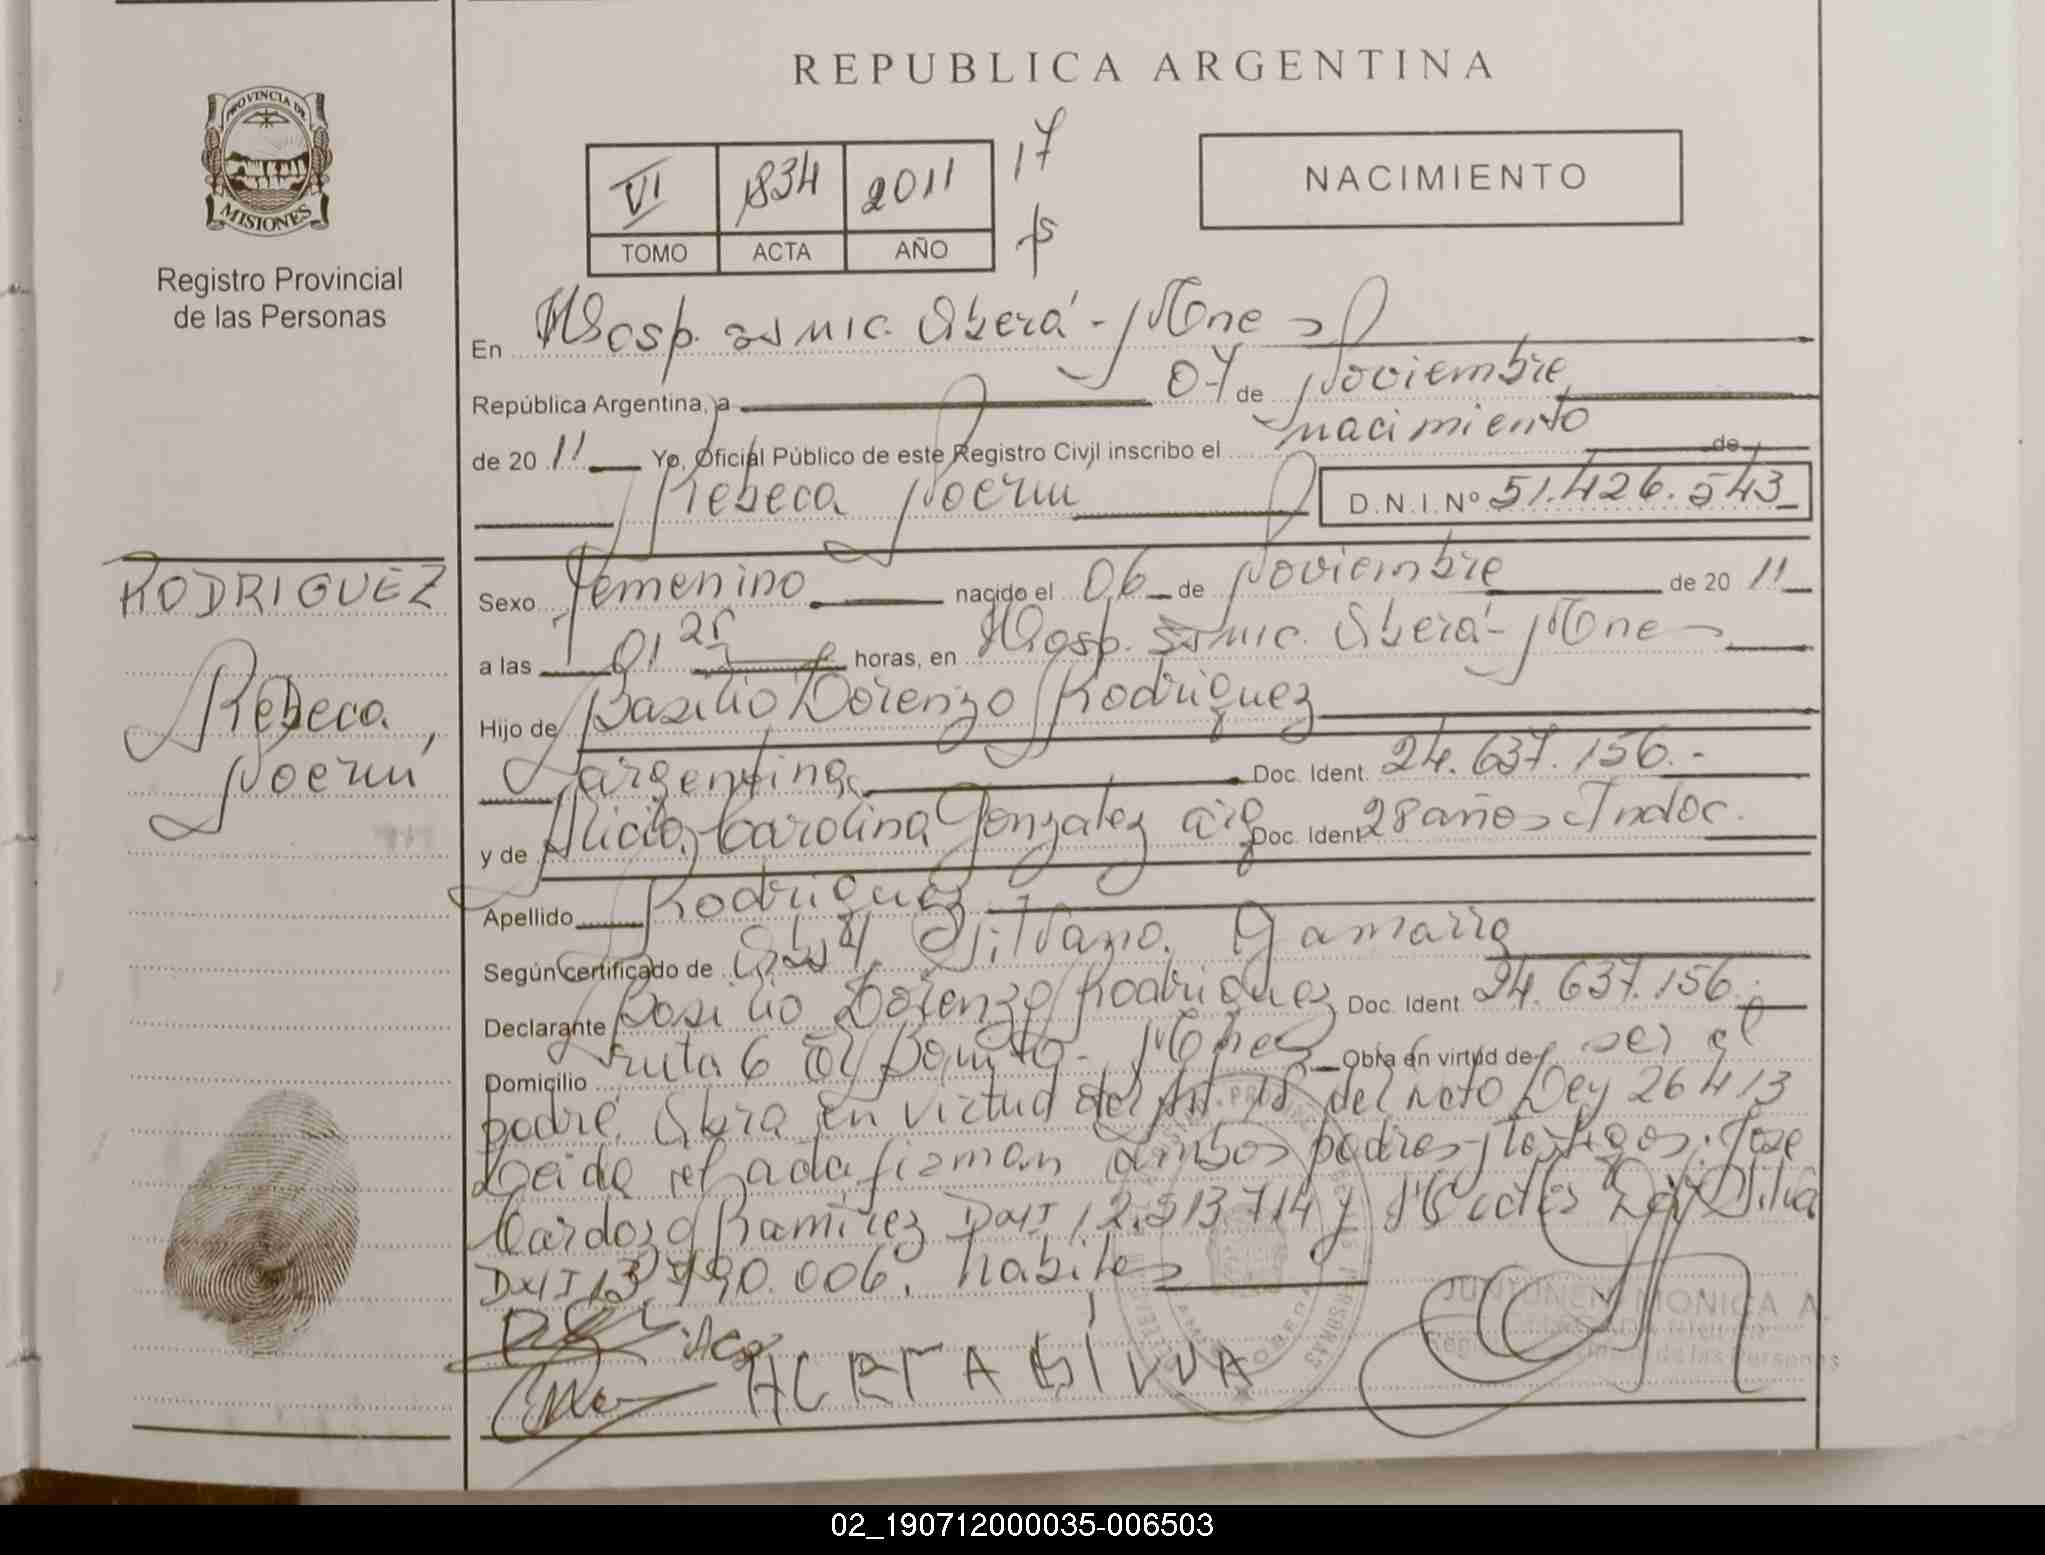 REPUBLICA ARGENTINA
PROVINCIA DE
MISIONES
Registro Provincial
de las Personas
VI 1834 2011 17
TOMO ACTA AÑO
NACIMIENTO
En Hosp. SAMIC. Oberá - Mnes
República Argentina, a 07 de Noviembre
de 20 11 Yo, Oficial Público de este Registro Civil inscribo el nacimiento de
Rebeca Noemí D.N.I.Nº 51.426.543
RODRIGUEZ
Rebeca
Noemí
Sexo Femenino nacido el 06 de Noviembre de 20 11
a las 01 25 horas, en Hosp. SAMIC. Oberá - Mnes
Hijo de Basilio Lorenzo Rodriguez
argentina Doc. Ident. 24.637.156.-
y de Alicia Carolina Gonzalez arg Doc. Ident 28 años Indoc.
Apellido Rodriguez
Según certificado de Silvano Gamarra
Declarante Basilio Lorenzo Rodriguez Doc. Ident 24.637.156.
Domicilio ruta 6 Bonito - Mnes Obra en virtud de ser el
padre. Obra en virtud del Art. 18 del Ley 26413
Leida el acta firman ambos padres y testigos: Jose
Cardozo Ramirez DNI 12.913714 y Silva
DNI 13.790.006. habiles
JUNTUNEN MONICA A.
de las Personas
02_190712000035-006503